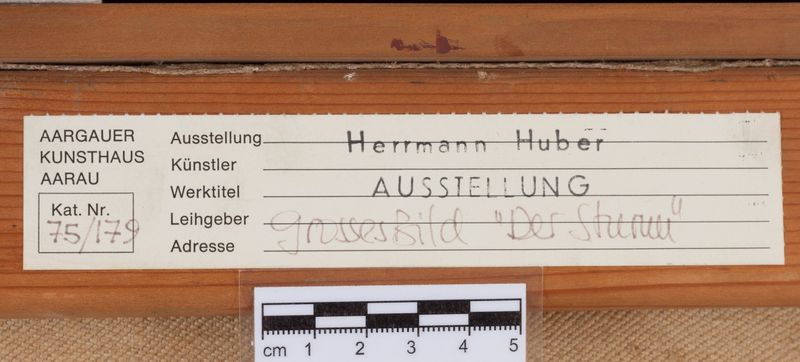 AARGAUER
KUNSTHAUS
AARAU
Kat. Nr.
75/179
Ausstellung Herrmann Huber
Künstler
Werktitel AUSSTELLUNG
Leihgeber Grosses Bild "Der Sturm"
Adresse
cm 1 2 3 4 5